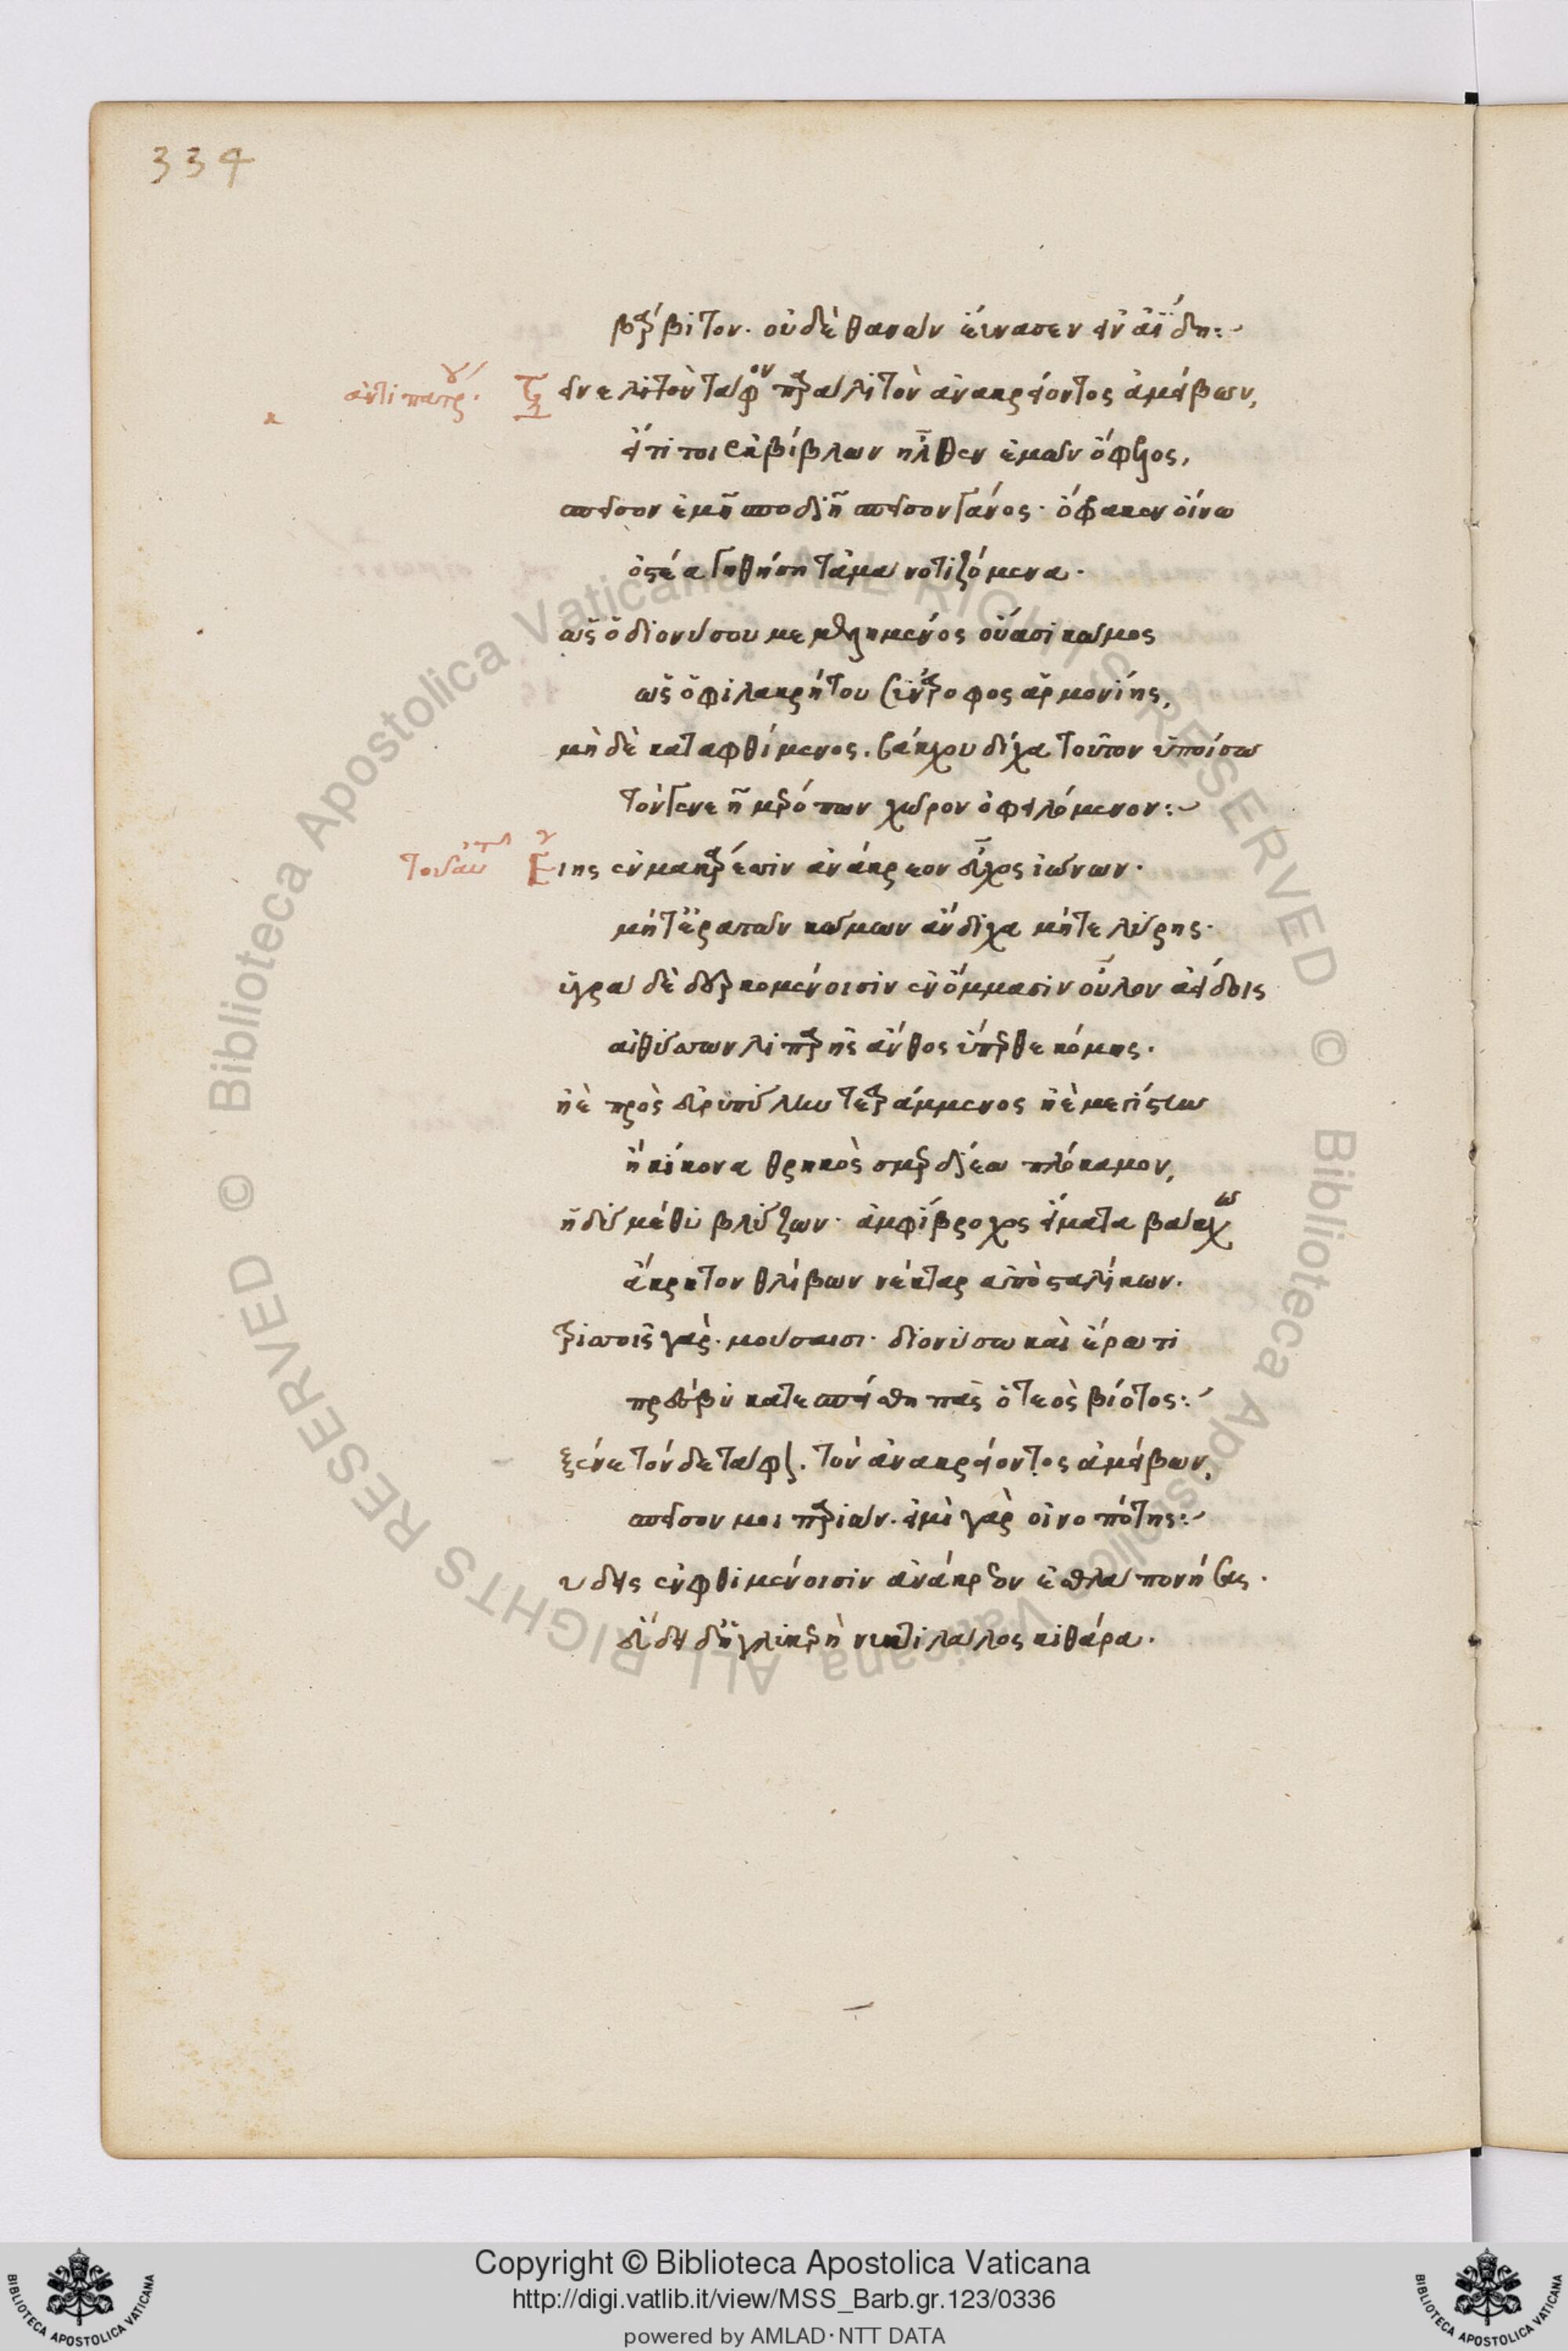 334
βάρβιτον. οὐδὲ θανὼν εὔνασεν εἰν ἀΐδη:~
ἀντιπάτρου. Ξεῖνε λιτὸν τάφον παρὰ λιτὸν ἀνακρείοντος ἀμείβων,
εἴ τί τοι ἐκ βίβλων ἦλθεν ἐμῶν ὄφελος,
σπεῖσον ἐμῇ σποδιῇ σπεῖσον γάνος. ὄφρα κεν οἴνω
ὀστέα γηθήση τἀμὰ νοτιζόμενα.
ὡς ὁ διονύσου με μελημένος οὔασι κῶμος
ὡς ὁ φιλακρήτου σύντροφος ἁρμονίης,
μηδὲ καταφθίμενος. βάκχου δίχα τοῦτον ὑποίσω
τὸν γενεῇ μερόπων χῶρον ὀφειλόμενον:~
τοῦ αὐτοῦ Εἴης ἐν μακάρεσσιν ἀνάκρεον εὖχος ἰώνων.
μήτ' ἐρατῶν κώμων ἄνδιχα μήτε λύρης.
ὑγρὰ δὲ δερκομένοισιν ἐν ὄμμασιν οὖλον ἀείδοις
αἰθύσσων λιπαρῆς ἄνθος ὕπερθε κόμης.
ἠὲ πρὸς εὐρυπύλην τετραμμένος ἠὲ μεγίστην
ἢ κίκονα θρηκὸς σμερδίεω πλόκαμον,
ἡδὺ μέθυ βλύζων. ἀμφίβροχος εἵματα βάκχω
ἄκρητον θλίβων νέκταρ ἀπὸ σταλίκων.
τρισσοῖς γὰρ. μούσαισι. διονύσω καὶ ἔρωτι
πρέσβυ κατεσπείσθη πᾶς ὁ τεὸς βίοτος:~
ξεῖνε τόνδε τάφον. τὸν ἀνακρείοντος ἀμείβων,
σπεῖσον μοι παριών. εἰμὶ γὰρ οἰνοπότης:~
υδεις ἐν φθιμένοισιν ἀνάκρεον ἐσθλὰ πονήσας.
εὕδει δ' ἡ γλυκερὴ νυκτιλάλος κιθάρα.
Copyright © Biblioteca Apostolica Vaticana
http://digi.vatlib.it/view/MSS_Barb.gr.123/0336
powered by AMLAD·NTT DATA